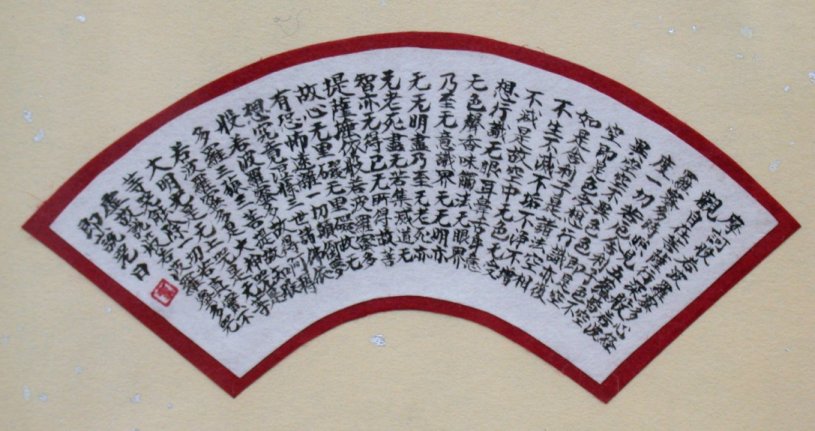 摩訶般若波羅蜜多心經
觀自在菩薩行深般若波
羅蜜多時照見五蘊皆空
度一切苦厄舍利子色不
異空空不異色色即是空
空即是色受想行識亦復
如是舍利子是諸法空相
不生不滅不垢不淨不增
不減是故空中无色无受
想行識无眼耳鼻舌身意
无色聲香味觸法无眼界
乃至无意識界无无明亦
无无明盡乃至无老死亦
无老死盡无苦集滅道无
智亦无得已无所得故菩
提薩埵依般若波羅蜜多
故心无罣礙无罣礙故无
有恐怖遠離一切顛倒夢
想究竟涅槃三世諸佛依
般若波羅蜜多故得阿耨
多羅三藐三菩提故知般
若波羅蜜多是大神咒是
大明咒是无上咒是无等
等咒能除一切苦真實不
虛故說般若波羅蜜多咒
即說咒曰